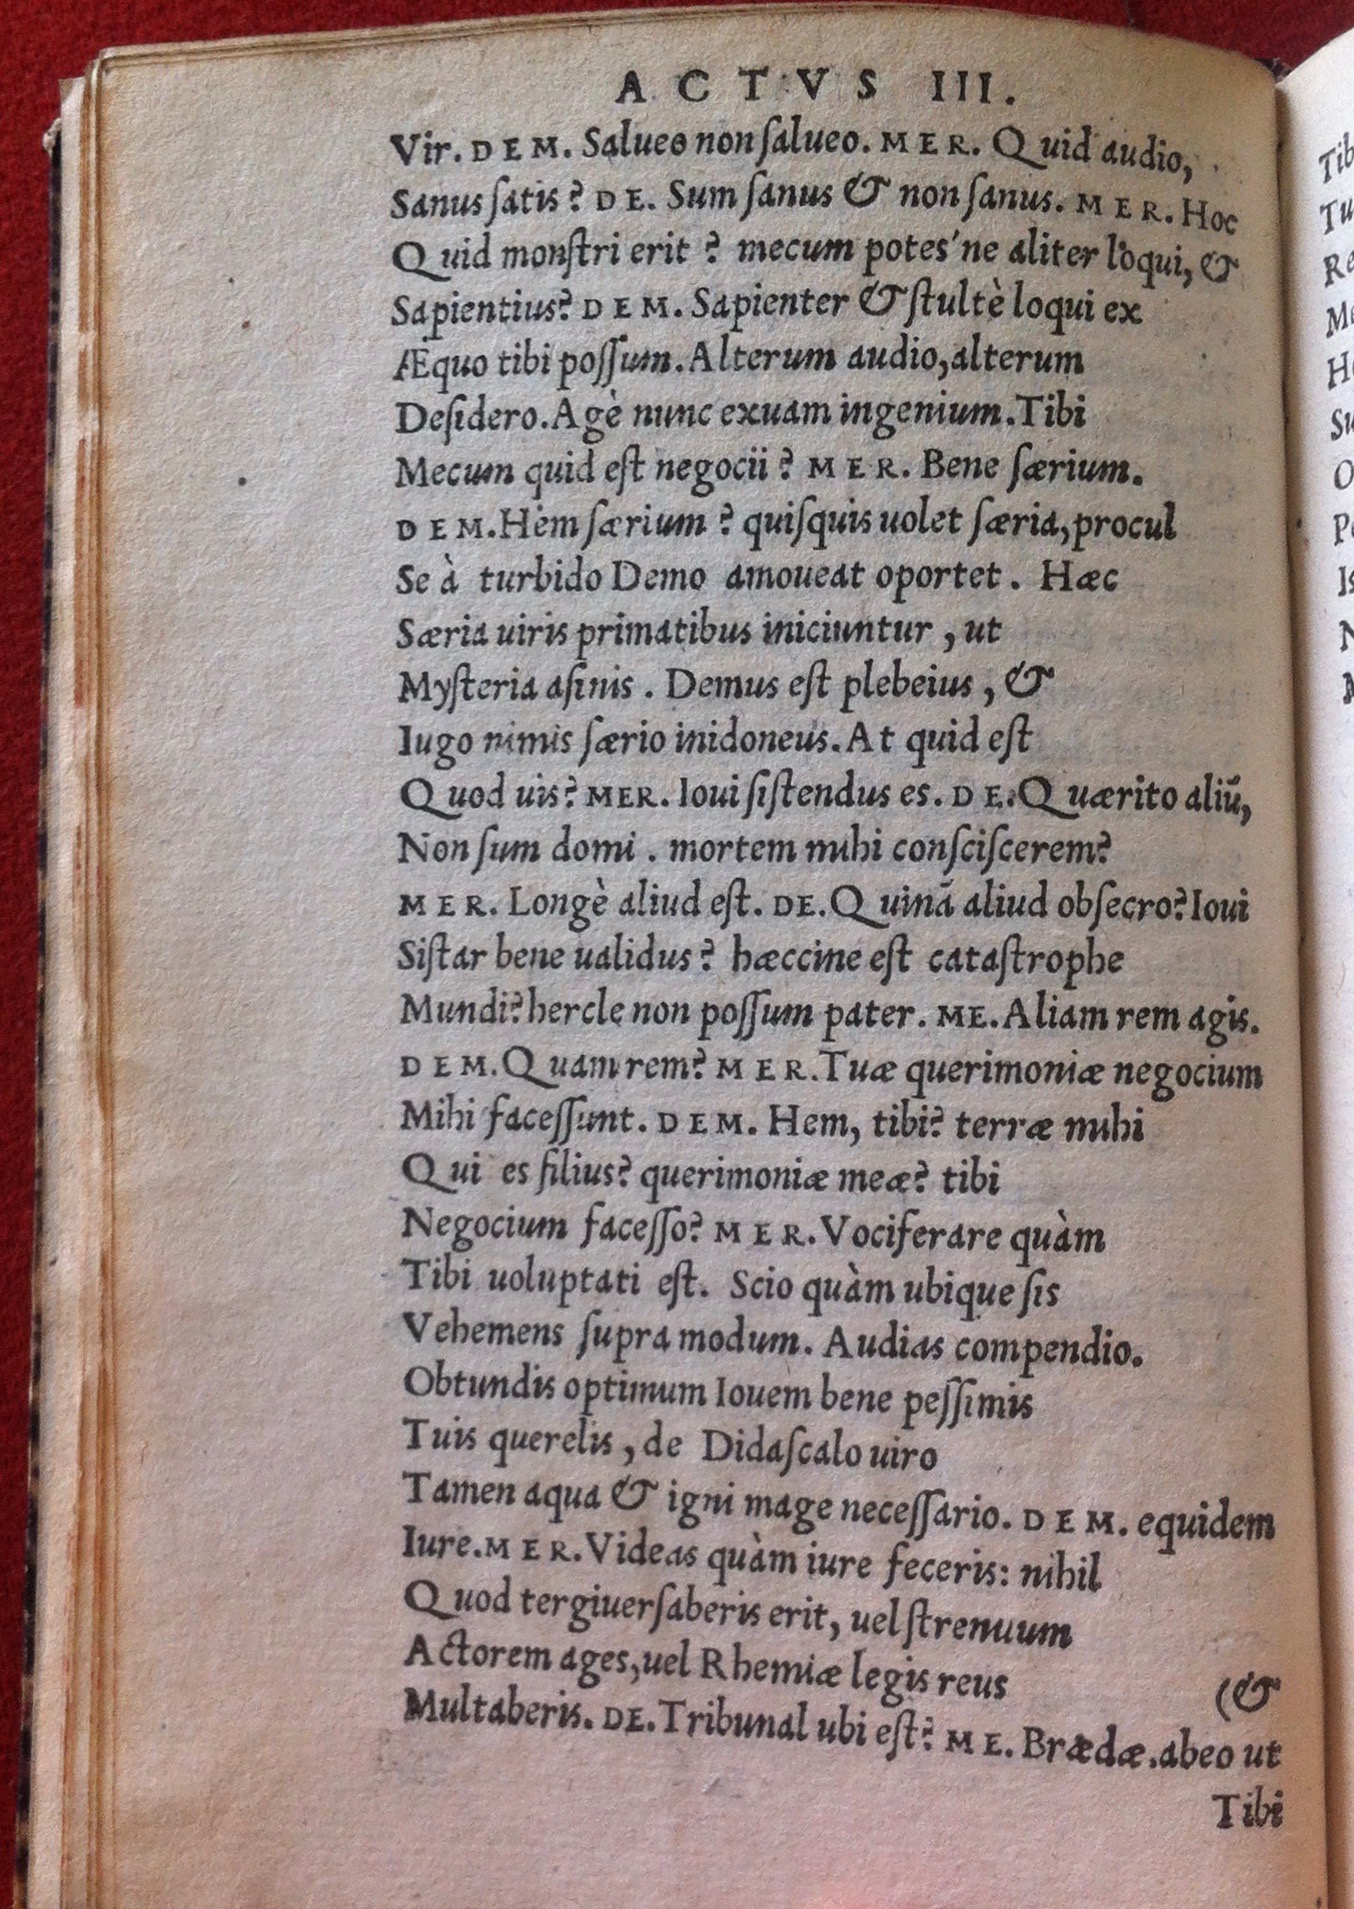 ACTVS III.
Vir. DEM. Salueo non ſalueo. MER. Quid audio,
Sanus ſatis? DE. Sum ſanus & non ſanus. MER. Hoc
Quid monſtri erit? mecum potes'ne aliter loqui, &
Sapientius? DEM. Sapienter & ſtultè loqui ex
Æquo tibi poſſum. Alterum audio, alterum
Deſidero. Agè nunc exuam ingenium. Tibi
Mecum quid eſt negocii? MER. Bene ſærium.
DEM. Hem ſærium? quiſquis uolet ſæria, procul
Se à turbido Demo amoueat oportet. Hæc
Særia uiris primatibus iniciuntur, ut
Myſteria aſinis. Demus eſt plebeius, &
Iugo nimis ſærio inidoneus. At quid eſt
Quod uis? MER. Ioui ſiſtendus es. DE. Quærito aliũ,
Non ſum domi. mortem mihi conſciſcerem?
MER. Longè aliud eſt. DE. Quinã aliud obſecro? Ioui
Siſtar bene ualidus? hæccine eſt cataſtrophe
Mundi? hercle non poſſum pater. ME. Aliam rem agis.
DEM. Quam rem? MER. Tuæ querimoniæ negocium
Mihi faceſſunt. DEM. Hem, tibi? terræ mihi
Qui es filius? querimoniæ meæ? tibi
Negocium faceſſo? MER. Vociferare quàm
Tibi uoluptati eſt. Scio quàm ubique ſis
Vehemens ſupra modum. Audias compendio.
Obtundis optimum Iouem bene peſſimis
Tuis querelis, de Didaſcalo uiro
Tamen aqua & igni mage neceſſario. DEM. equidem
Iure. MER. Videas quàm iure feceris: nihil
Quod tergiuerſaberis erit, uel ſtrenuum
Actorem ages, uel Rhemiæ legis reus
(&
Multaberis. DE. Tribunal ubi eſt? ME. Brædæ. abeo ut
Tibi